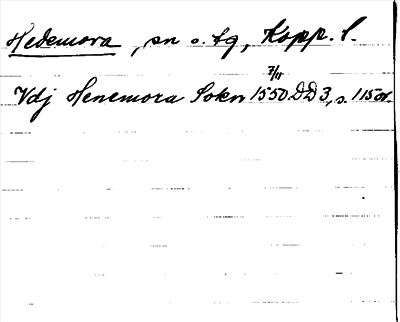 Hedemora, sn o. tg, Kopp. l.
7/11
Vdj Henemora Sokn 1550 DD 3, s. 115